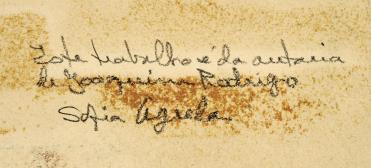 Este trabalho é da autoria
de Joaquim Rodrigo
Sofia Agrela